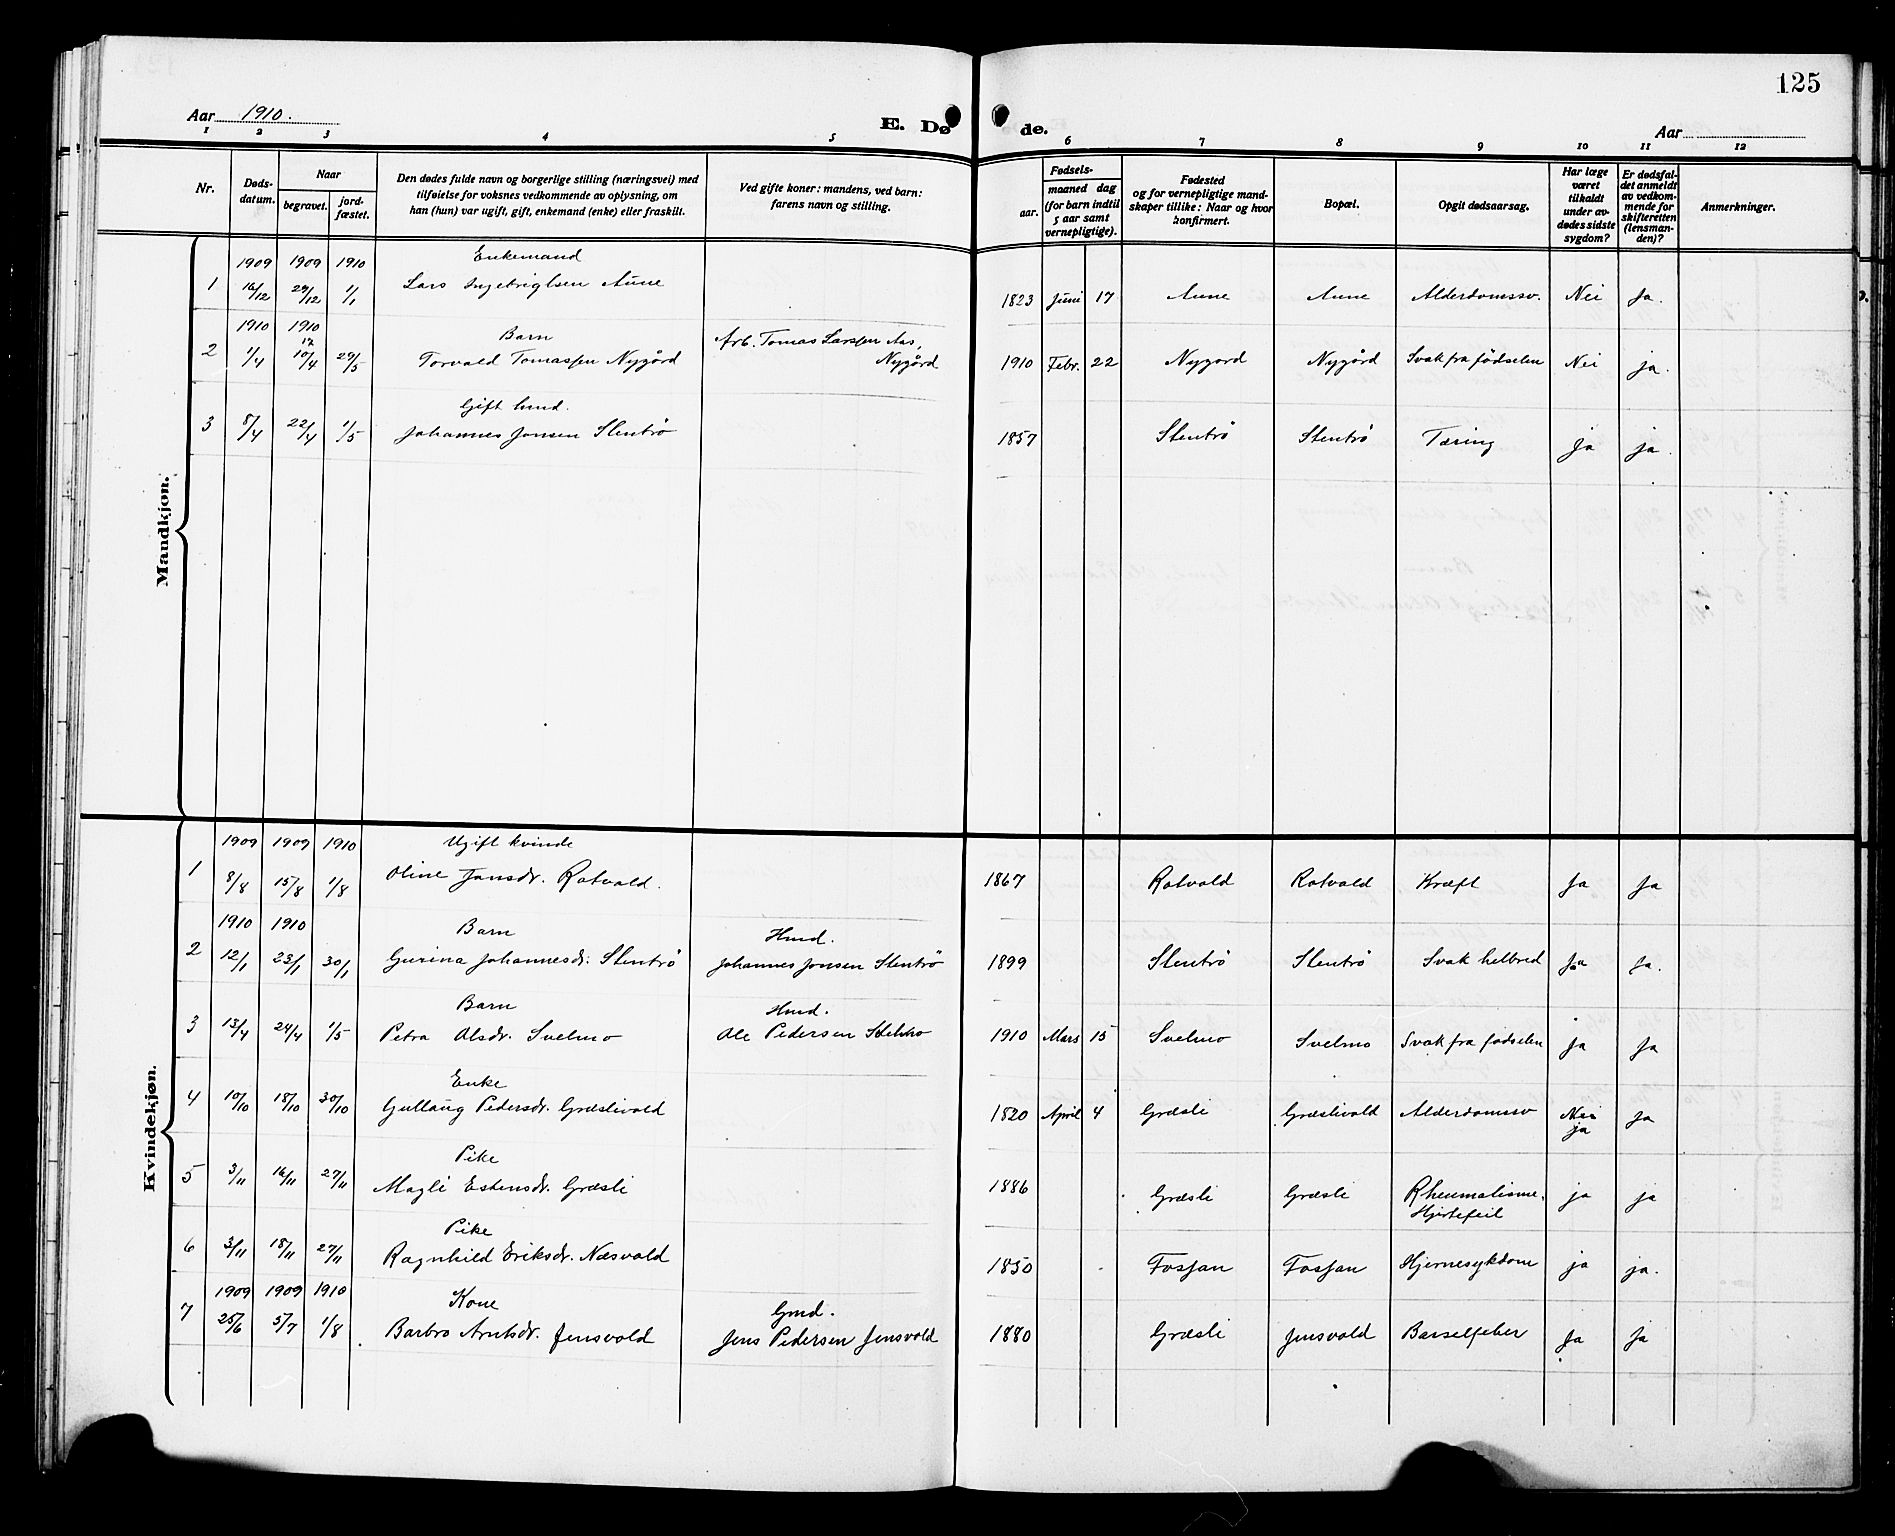 125
Aar 1910.
E. Døde.
Aar
1 2 3 4 5 6 7 8 9 10 11 12
Nr.
Døds-datum.
Naar
begravet.
jord-fæstet.
Den dødes fulde navn og borgerlige stilling (næringsvei) med
tilføielse for voksnes vedkommende av oplysning, om
han (hun) var ugift, gift, enkemand (enke) eller fraskilt.
Ved gifte koner: mandens, ved barn:
farens navn og stilling.
Fødsels-
aar.
maaned dag
(for barn indtil
5 aar samt
vernepligtige).
Fødested
og for vernepligtige mand-
skaper tillike: Naar og hvor
konfirmert.
Bopæl.
Opgit dødsaarsag.
Har læge
været
tilkaldt
under av-
dødes sidste
sygdom?
Er dødsfal-
det anmeldt
av vedkom-
mende for
skifteretten
(lensman-
den)?
Anmerkninger.
Mandkjøn.
1909 1909 1910 Enkemand
1 16/12 29/12 1/1 Lars Ingebrigtsen Aune 1823 Juni 17 Aune Aune Alderdomssv. Nei Ja.
1910 1910 Barn Arb. Tomas Larssen Aas,
2 1/4 10/4 29/5 Torvald Tomassen Nygård Nygård 1910 Febr. 22 Nygord Nygård Svak fra fødselen Nei ja.
Gift hmd.
3 8/4 22/4 1/5 Johannes Jonsen Stentrø 1857 Stentrø Stentrø Tæring ja ja.
Kvindekjøn.
1909 1909 1910 Ugift kvinde
1 8/8 15/8 1/8 Oline Jonsdr. Rotvold. 1867 Rotvold Rotvold Kræft Ja Ja
1910 1910 Barn Hmd.
2 12/1 23/1 30/1 Gurina Johannesdr. Stentrø Johannes Jonsen Stentrø 1899 Stentrø Stentrø Svak helbred Ja Ja.
Barn Hmd.
3 13/4 24/4 1/5 Petra Olsdr. Svelmo Ole Pedersen 1910 Mars 15 Svelmo Svelmo Svak fra fødselen ja Ja
Enke
4 10/10 18/10 30/10 Gullaug Pedersdr. Græslivold 1820 April 4 Græsli Græslivold Alderdomssv Nei ja Ja
Pike
5 3/11 16/11 27/11 Magli Estensdr. Græsli 1886 Græsli Græsli Rheumatisme, Hjertefeil ja ja
Pike
6 3/11 18/11 27/11 Ragnhild Eriksdr. Næsvold 1850 Fossan Fossan Hjernesykdom ja ja.
1909 1909 1910 Kone Gmd.
7 25/6 5/7 1/8 Barbro Arntsdr. Jensvold Jens Pedersen Jensvold 1880 Græsli Jensvold Barselfeber Ja Ja